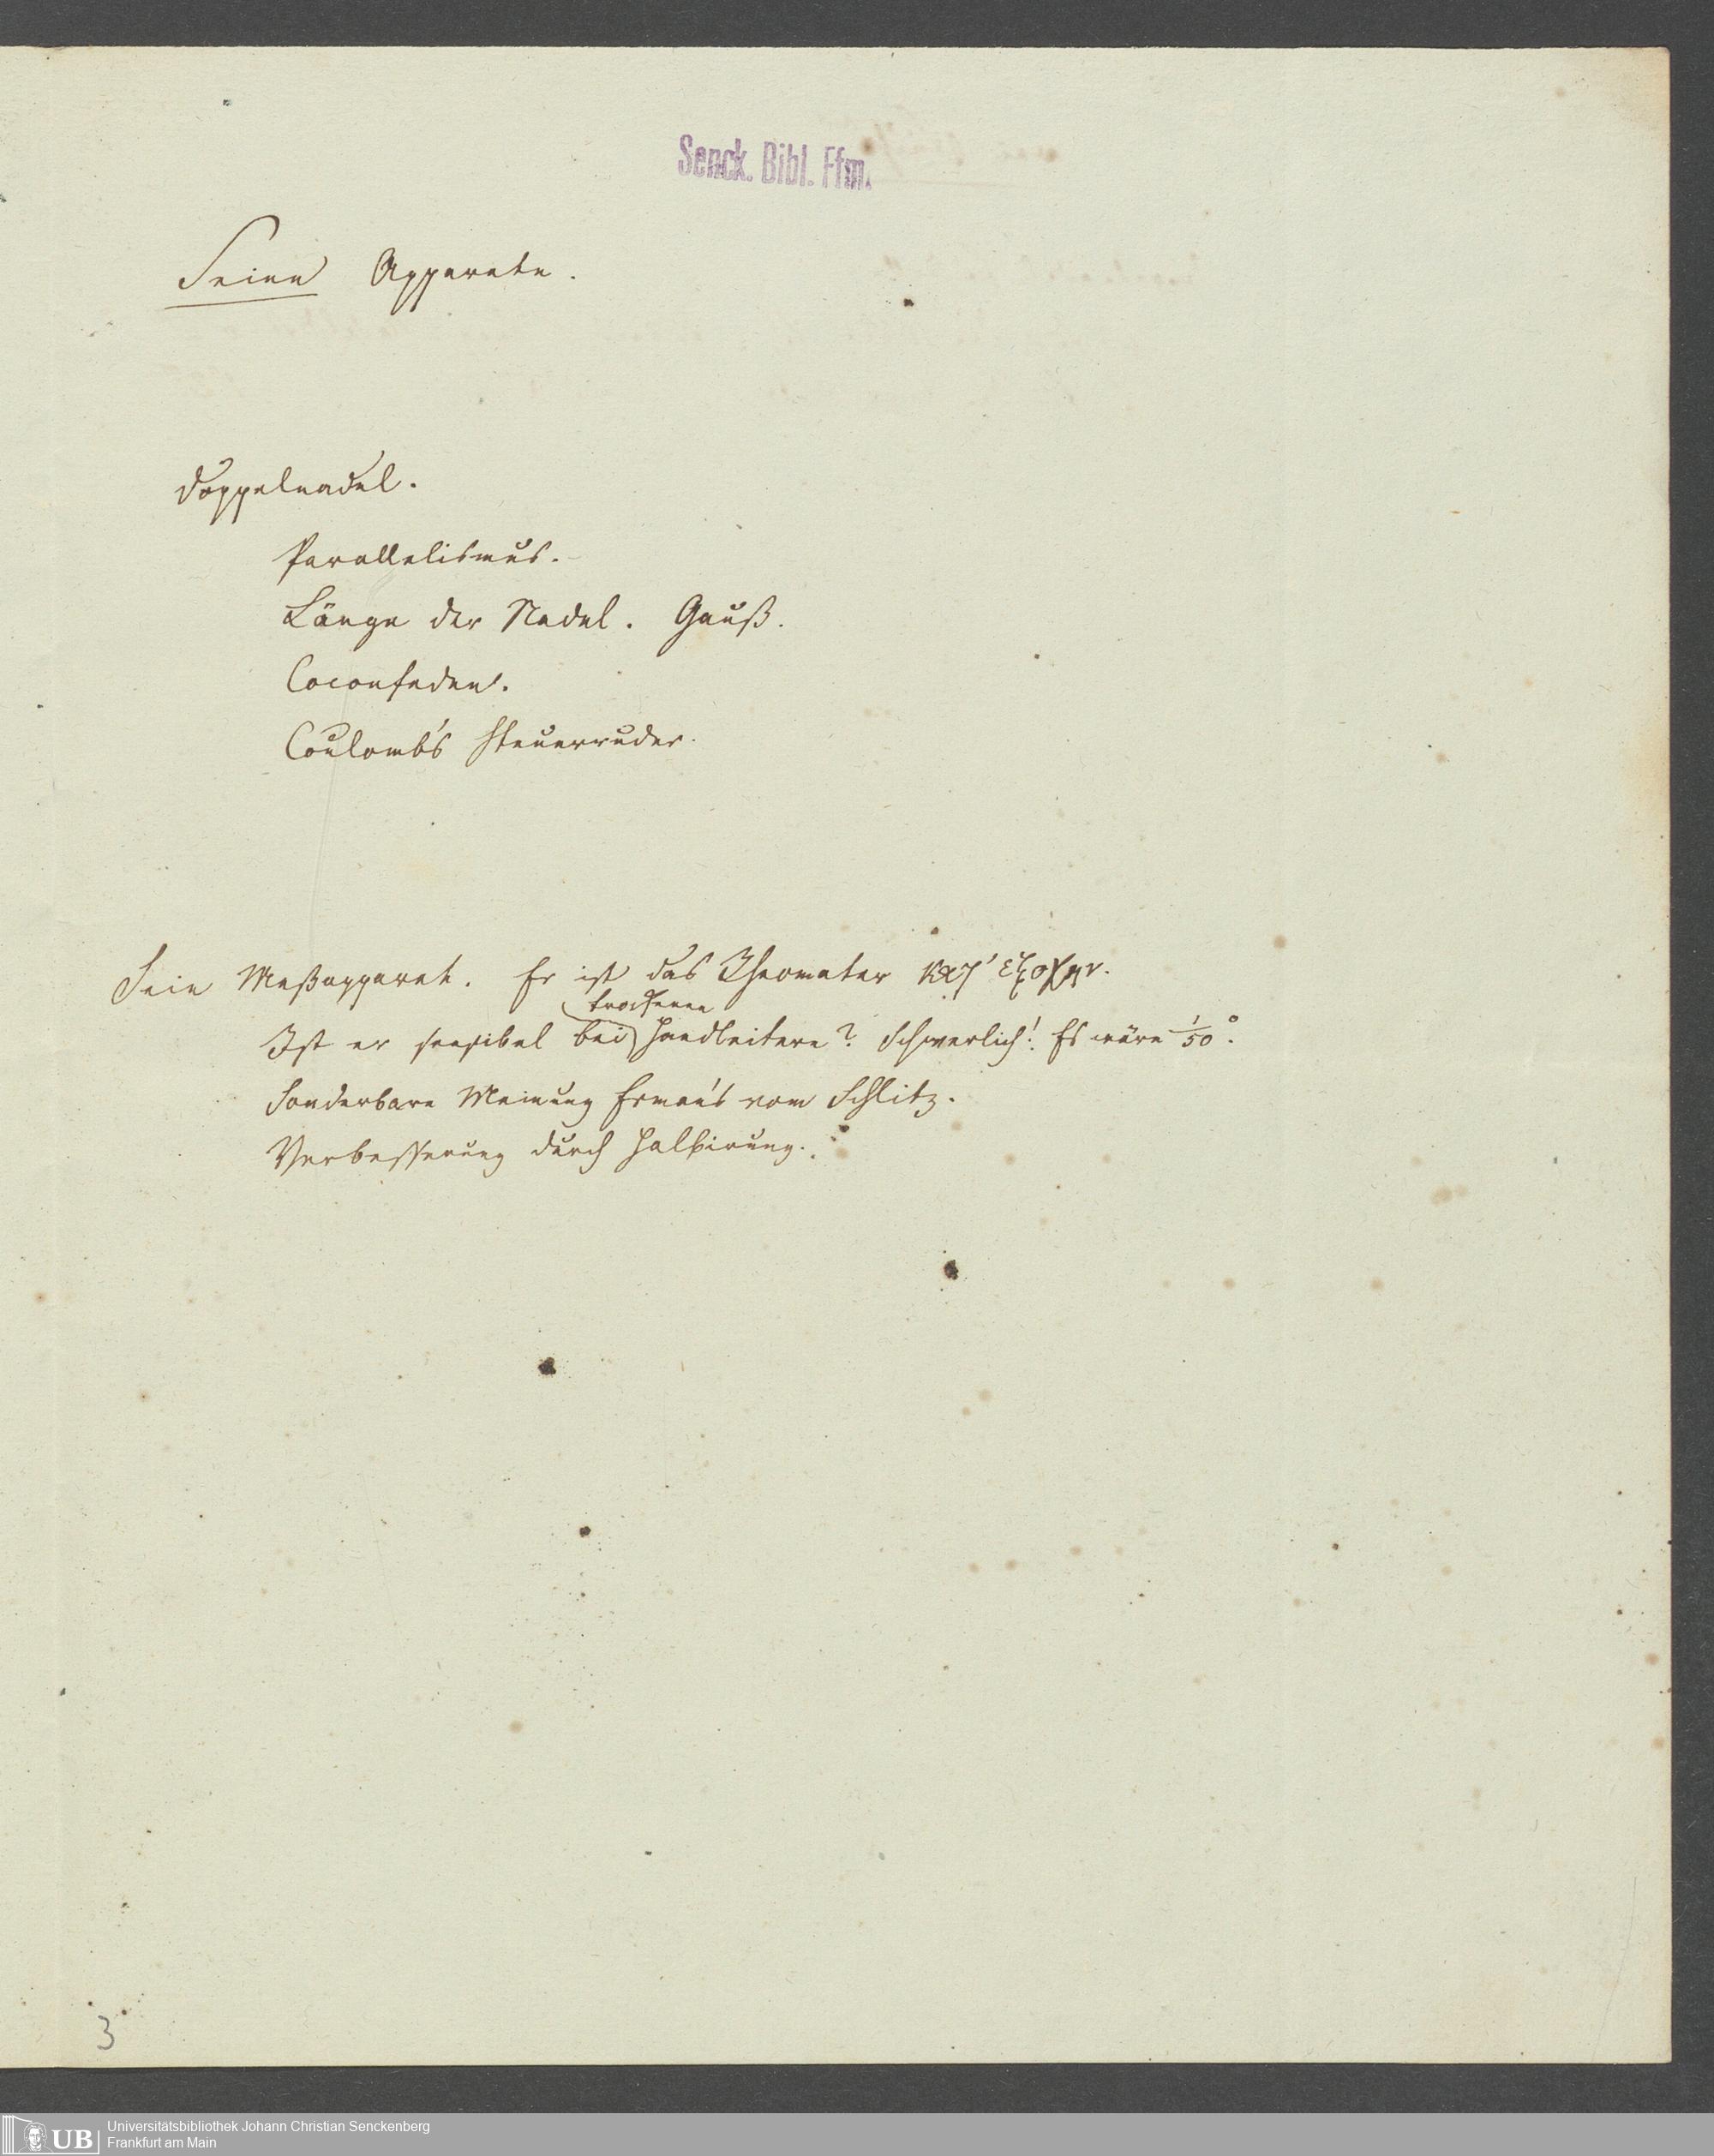 Senck. Bibl. Ffm.
Seine Apparate.
Doppelnadel.
Parallelismus.
Länge der Nadel. Gauß.
Coconfaden.
Coulomb's Steuerruder.
Sein Meßapparat. Er ist das Rheometer κατ' εξοχην.
trockenen
Ist er sensibel bei Handleitern? Schwerlich! Es wäre 1/50°.
Sonderbare Meinung Erman's vom Schlitz.
Verbesserung durch Halbirung.
3
UB
Universitätsbibliothek Johann Christian Senckenberg
Frankfurt am Main